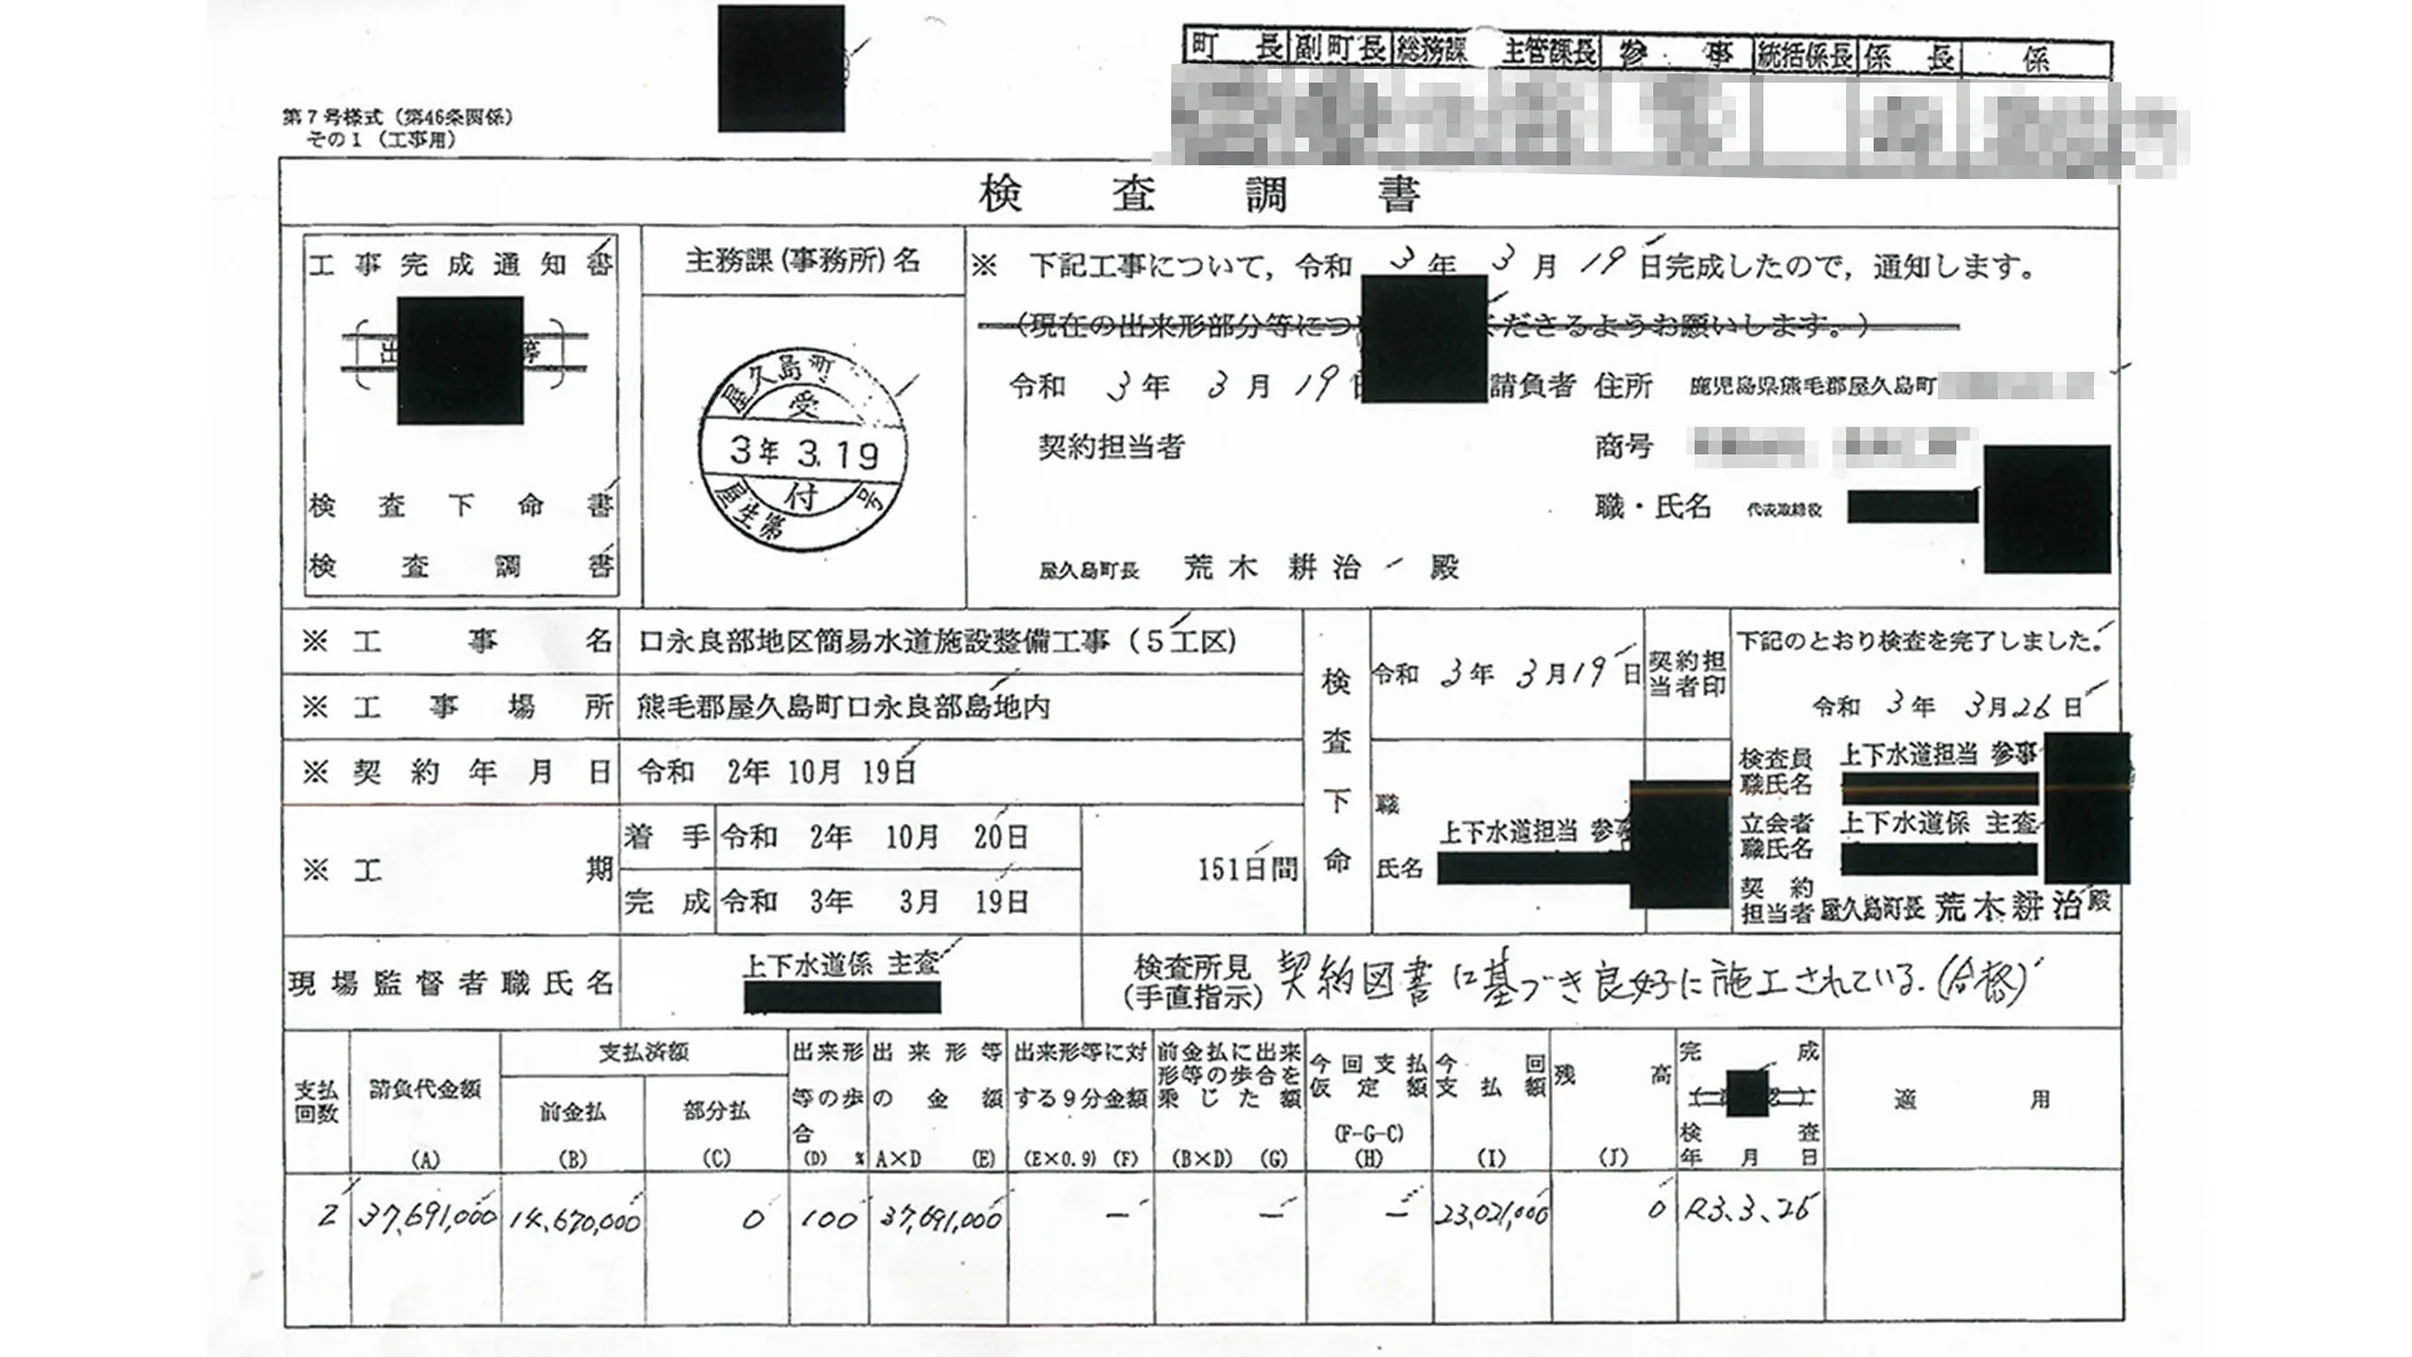 町長 副町長 総務課 主管課長 参事 統括係長 係長 係
第7号様式(第46条関係)
その1(工事用)
検査調書
工事完成通知書
出 等
検査下命書
検査調書
主務課(事務所)名
屋久島町
受
3年 3.19
付
屋生第 号
※ 下記工事について,令和 3年 3月 19日完成したので,通知します。
(現在の出来形部分等につ くださるようお願いします。)
令和 3年 3月 19日 請負者 住所 鹿児島県熊毛郡屋久島町
契約担当者 商号
職・氏名 代表取締役
屋久島町長 荒木耕治 殿
※工事名 口永良部地区簡易水道施設整備工事(5工区)
※工事場所 熊毛郡屋久島町口永良部島地内
※契約年月日 令和 2年 10月 19日
※工期 着手 令和 2年 10月 20日
完成 令和 3年 3月 19日
151日間
検査下命
令和 3年 3月19日
契約担当者印
職 上下水道担当 参事
氏名
下記のとおり検査を完了しました。
令和 3年 3月26日
検査員職氏名 上下水道担当 参事
立会者職氏名 上下水道係 主査
契約担当者 屋久島町長 荒木耕治殿
現場監督者職氏名 上下水道係 主査
検査所見(手直指示) 契約図書に基づき良好に施工されている.(合格)
支払回数
請負代金額 (A)
支払済額
前金払 (B)
部分払 (C)
出来形等の歩合 (D) %
出来形等の金額 A×D (E)
出来形等に対する9分金額 (E×0.9) (F)
前金払に出来形等の歩合を乗じた額 (B×D) (G)
今回支払仮定額 (F-G-C) (H)
今回支払額 (I)
残高 (J)
完成
検査年月日
適用
2 37,691,000 14,670,000 0 100 37,691,000 — — — 23,021,000 0 R3.3.26